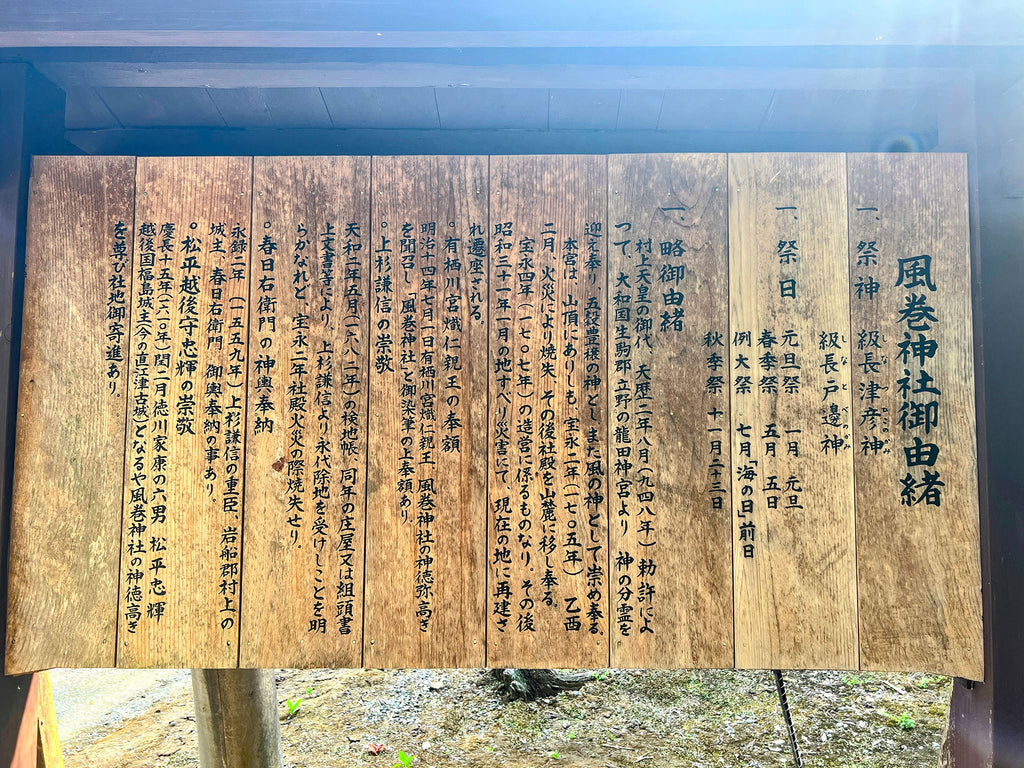 風巻神社御由緒
一、祭神 級長津彦神
しなつひこのかみ
級長戸邊神
しなとべのかみ
一、祭日 元旦祭 一月 元旦
春季祭 五月 五日
例大祭 七月「海の日」前日
秋季祭 十一月二十三日
一、略御由緒
村上天皇の御代、天歴二年八月(九四八年)勅許によ
つて、大和国生駒郡立野の龍田神宮より 神の分霊を
迎え奉り、五穀豊穣の神とし、また風の神として崇め奉る。
本宮は、山頂にありしも、宝永二年(一七〇五年) 乙酉
二月、火災により焼失、その後社殿を山麓に移し奉る。
宝永四年(一七〇七年)の造営に係るものなり。その後
昭和三十一年一月の地すべり災害にて、現在の地に再建さ
れ遷座される。
○有栖川宮熾仁親王の奉額
明治十四年七月一日有栖川宮熾仁親王 風巻神社の神徳弥高き
を聞召し「風巻神社」と御染筆の上奉額あり。
○上杉謙信の崇敬
天和二年五月(一六八二年)の検地帳、同年の庄屋又は組頭書
上文書等により、上杉謙信より永代除地を受けしことを明
らかなれど、宝永二年社殿火災の際焼失せり。
○春日右衛門の神輿奉納
永録二年 (一五五九年)上杉謙信の重臣、岩船郡村上の
城主、春日右衛門 御輿奉納の事あり。
○松平越後守忠輝の崇敬
慶長十五年(一六一〇年)閏二月徳川家康の六男 松平忠輝
越後国福島城主(今の直江津古城)となるや風巻神社の神徳高き
を尊び社地御寄進あり。